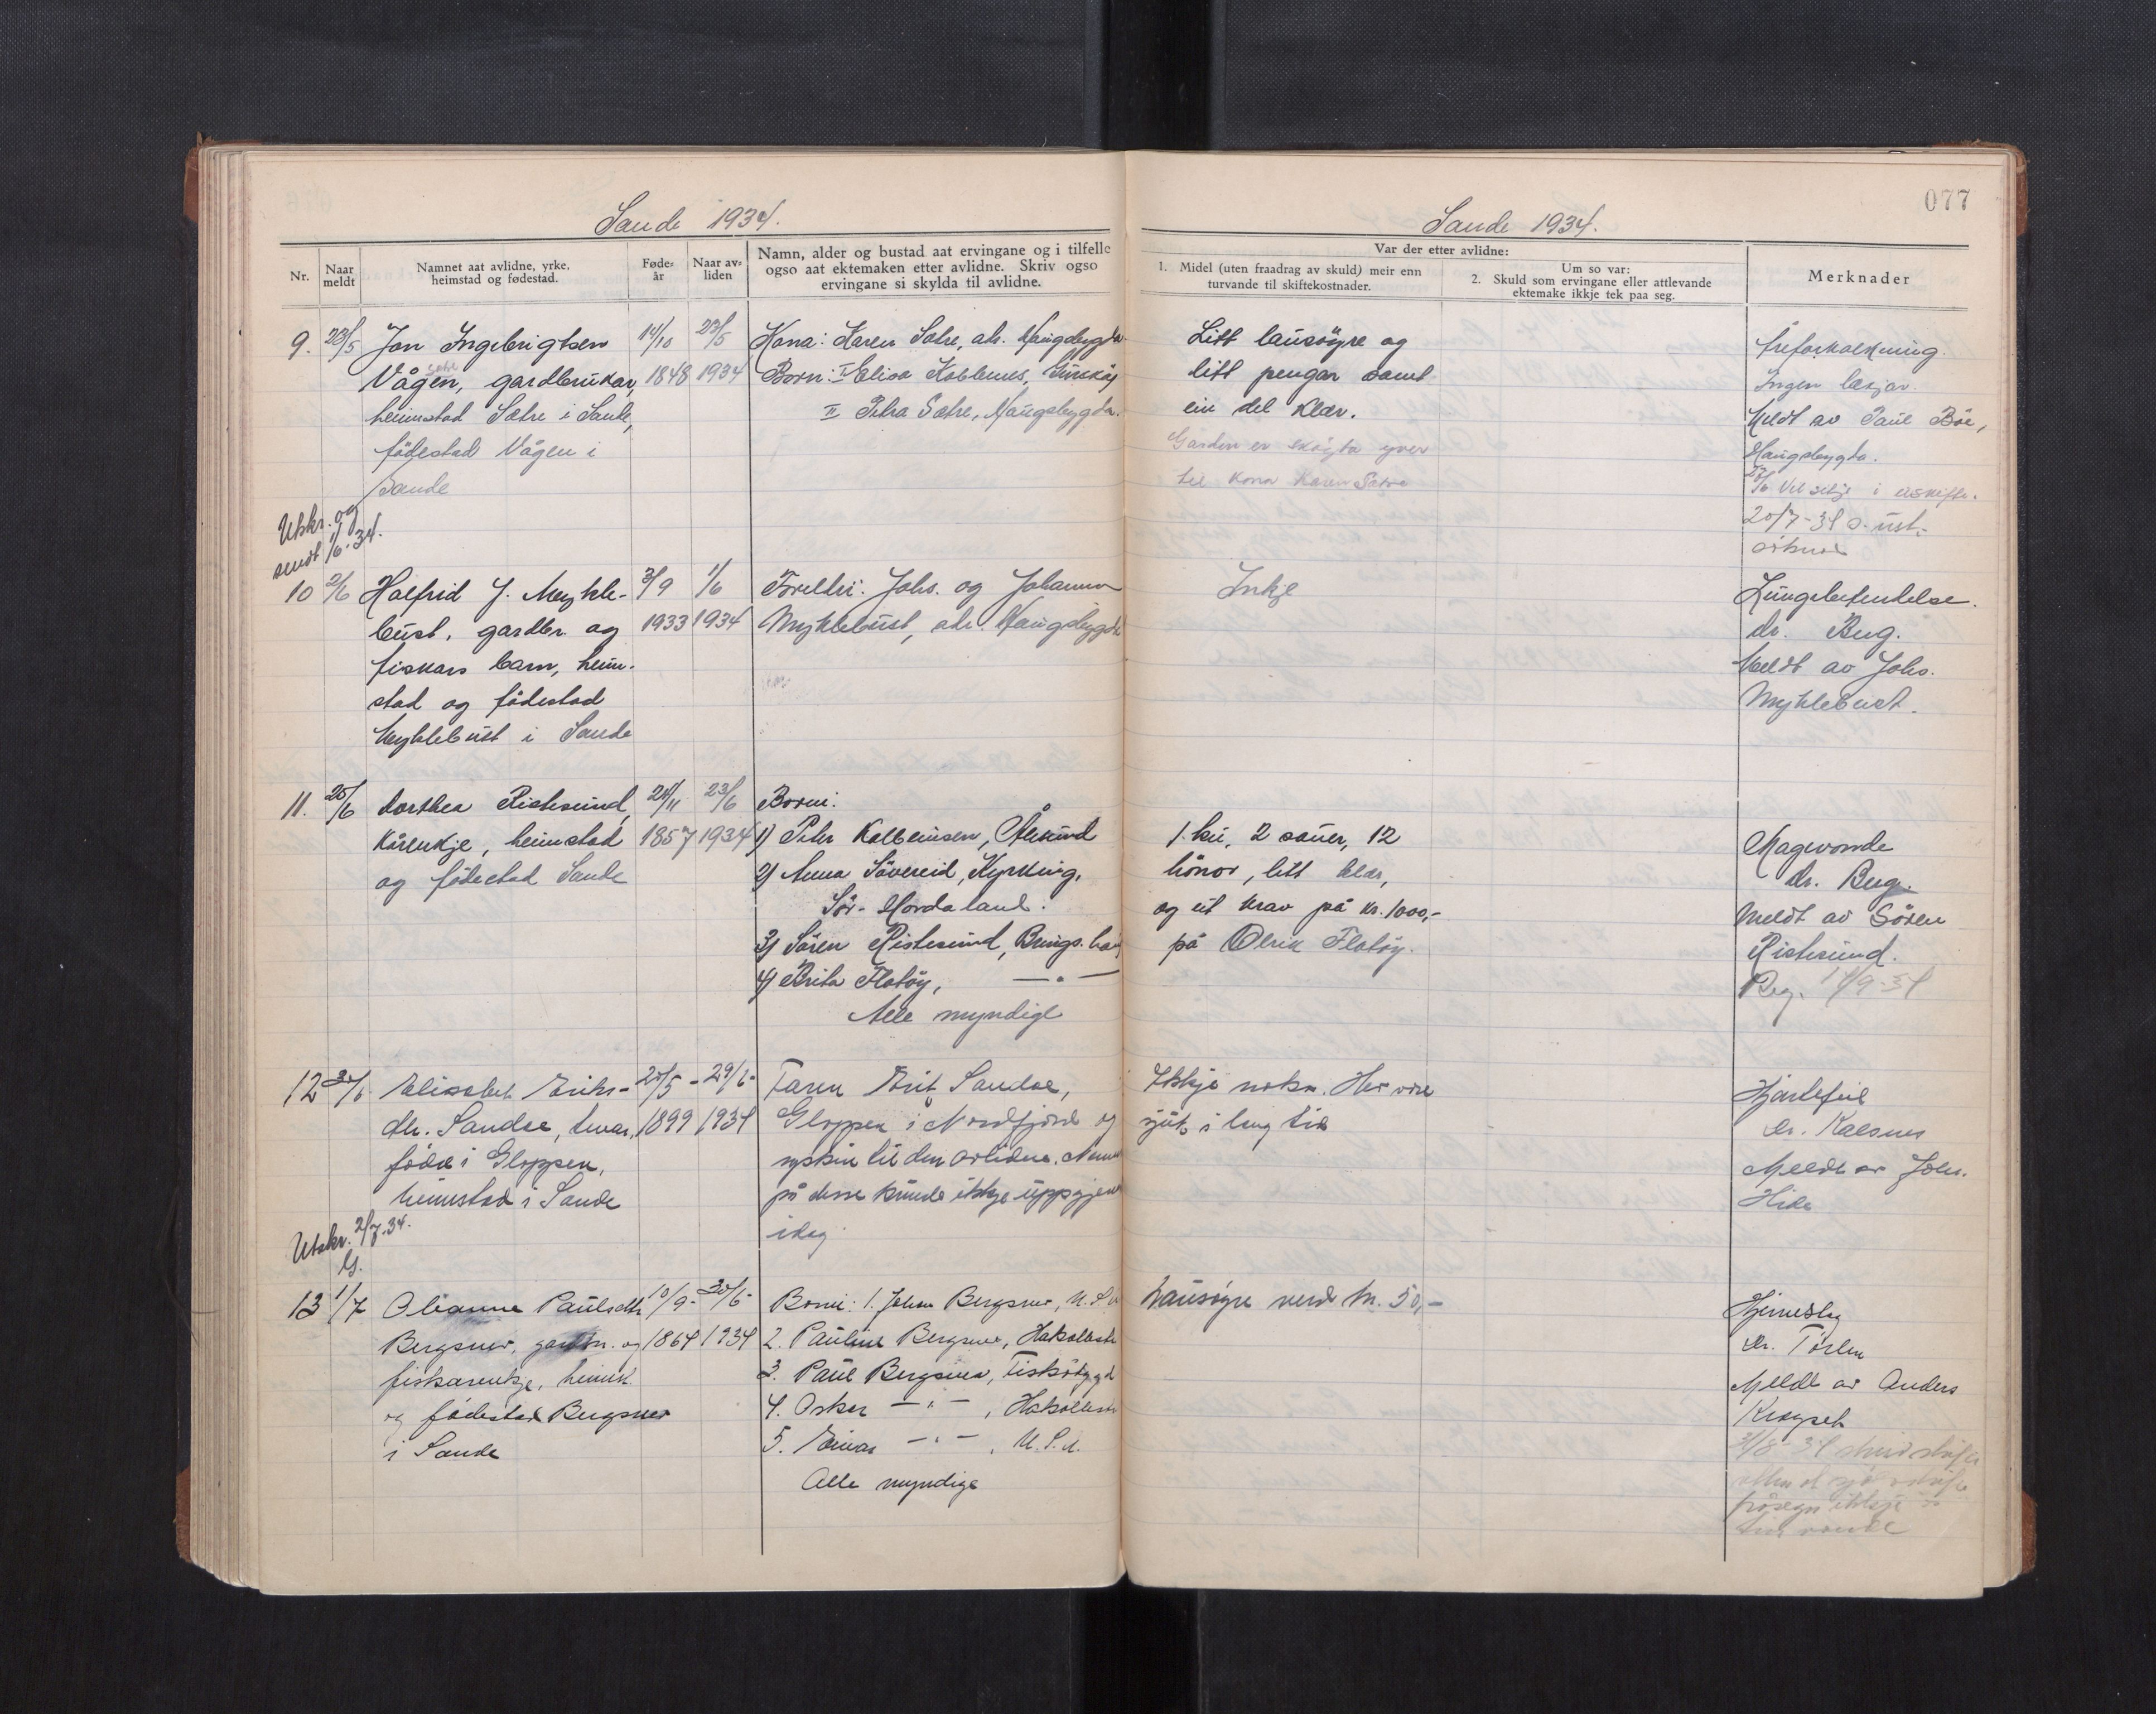 Sande 1934.
Nr.
Naar meldt
Namnet aat avlidne, yrke, heimstad og fødestad.
Føde-år
Naar av-liden
Namn, alder og bustad aat ervingane og i tilfelle
ogso aat ektemaken etter avlidne. Skriv ogso
ervingane si skylda til avlidne.
9. 23/5 Jon Ingebrigtsen 14/10 23/5 Kona: Karen Sætre, adr. Haugsbygda
Vågen, gardbrukar, 1848 1934 Born: I Elisa
heimstad Sætre i Sande, II Petra Sætre, Haugsbygda.
fødestad Vågen i
Sande
Utskr. og
sendt 1/6-34.
10 2/6 Halfrid J. Mykle- 3/9 1/6 Foreldri: Johs. og Johanna
bust, gardbr. og 1933 1934 Myklebust, adr. Haugsbygda
fiskars barn, heim-
stad og fødestad
Myklebust i Sande
11. 25/6 Dorthea Ristesund, 24/11 23/6 Borni:
kårenkje, heimstad 1857 1934 1) Peter Kolbeinsen, Ålesund
og fødestad Sande 2) Anna Søvereid, Kyrking,
Sør-Hordaland.
3) Søren Ristesund, Brings.haug
4) Brita Flatøy, —"—
Alle myndige
12 30/6 Elisabet Eriks- 20/5 - 29/6- Faren Erik Sandøe,
dtr. Sandøe, tenar, 1899 1934 Gloppen i Nordfjord og
fødd i Gloppen, syskin til den avlidne. Namn
heimstad i Sande på desse kunde ikkje uppgjevast
idag
Utskr. 2/7.34.
13 1/7 Olianna Paulsdtr. 10/9- 30/6- Borni: 1. Johan Bergsnes, U.S.A.
Bergsnes, gardbr. og 1864 1934 2. Pauline Bergsnes, Hakallestr.
fiskarenkje, heimst. 3. Paul Bergsnes, Fiskåbygd
og fødestad Bergsnes 4. Oskar —"—, Hakallestr.
i Sande 5. Einar —"—, U.S.A.
Alle myndige
077
Sande 1934.
Var der etter avlidne:
1. Midel (uten fraadrag av skuld) meir enn
turvande til skiftekostnader.
Um so var:
2. Skuld som ervingane eller attlevande
ektemake ikkje tek paa seg.
Merknader
Litt lausøyre og
litt pengar samt
ein del klær.
Garden er skøyta yver
til kona Karen Sætre
Åreforkalkning.
Ingen lækjar.
Meldt av Paul Bøe,
Haugsbygda.
Vil sitje i uskifte.
20/7-34
Inkje
Lungebetendelse.
dr. Bug.
Meldt av Johs.
Myklebust.
1 ku, 2 sauer, 12
hönor, litt klær,
og eit krav på kr. 1000,-
på Olrik Flatøy.
Magevonde
dr. Bug.
Meldt av Søren
Ristesund.
Reg. 14/9-34
Ikkje noko. Har vore
sjuk i lang tid
Hjartefeil
dr. Kalsnes
Meldt av Johs.
Hide
Lausøyre verd kr. 50,-
Hjerneslag
dr.
Meldt av Anders